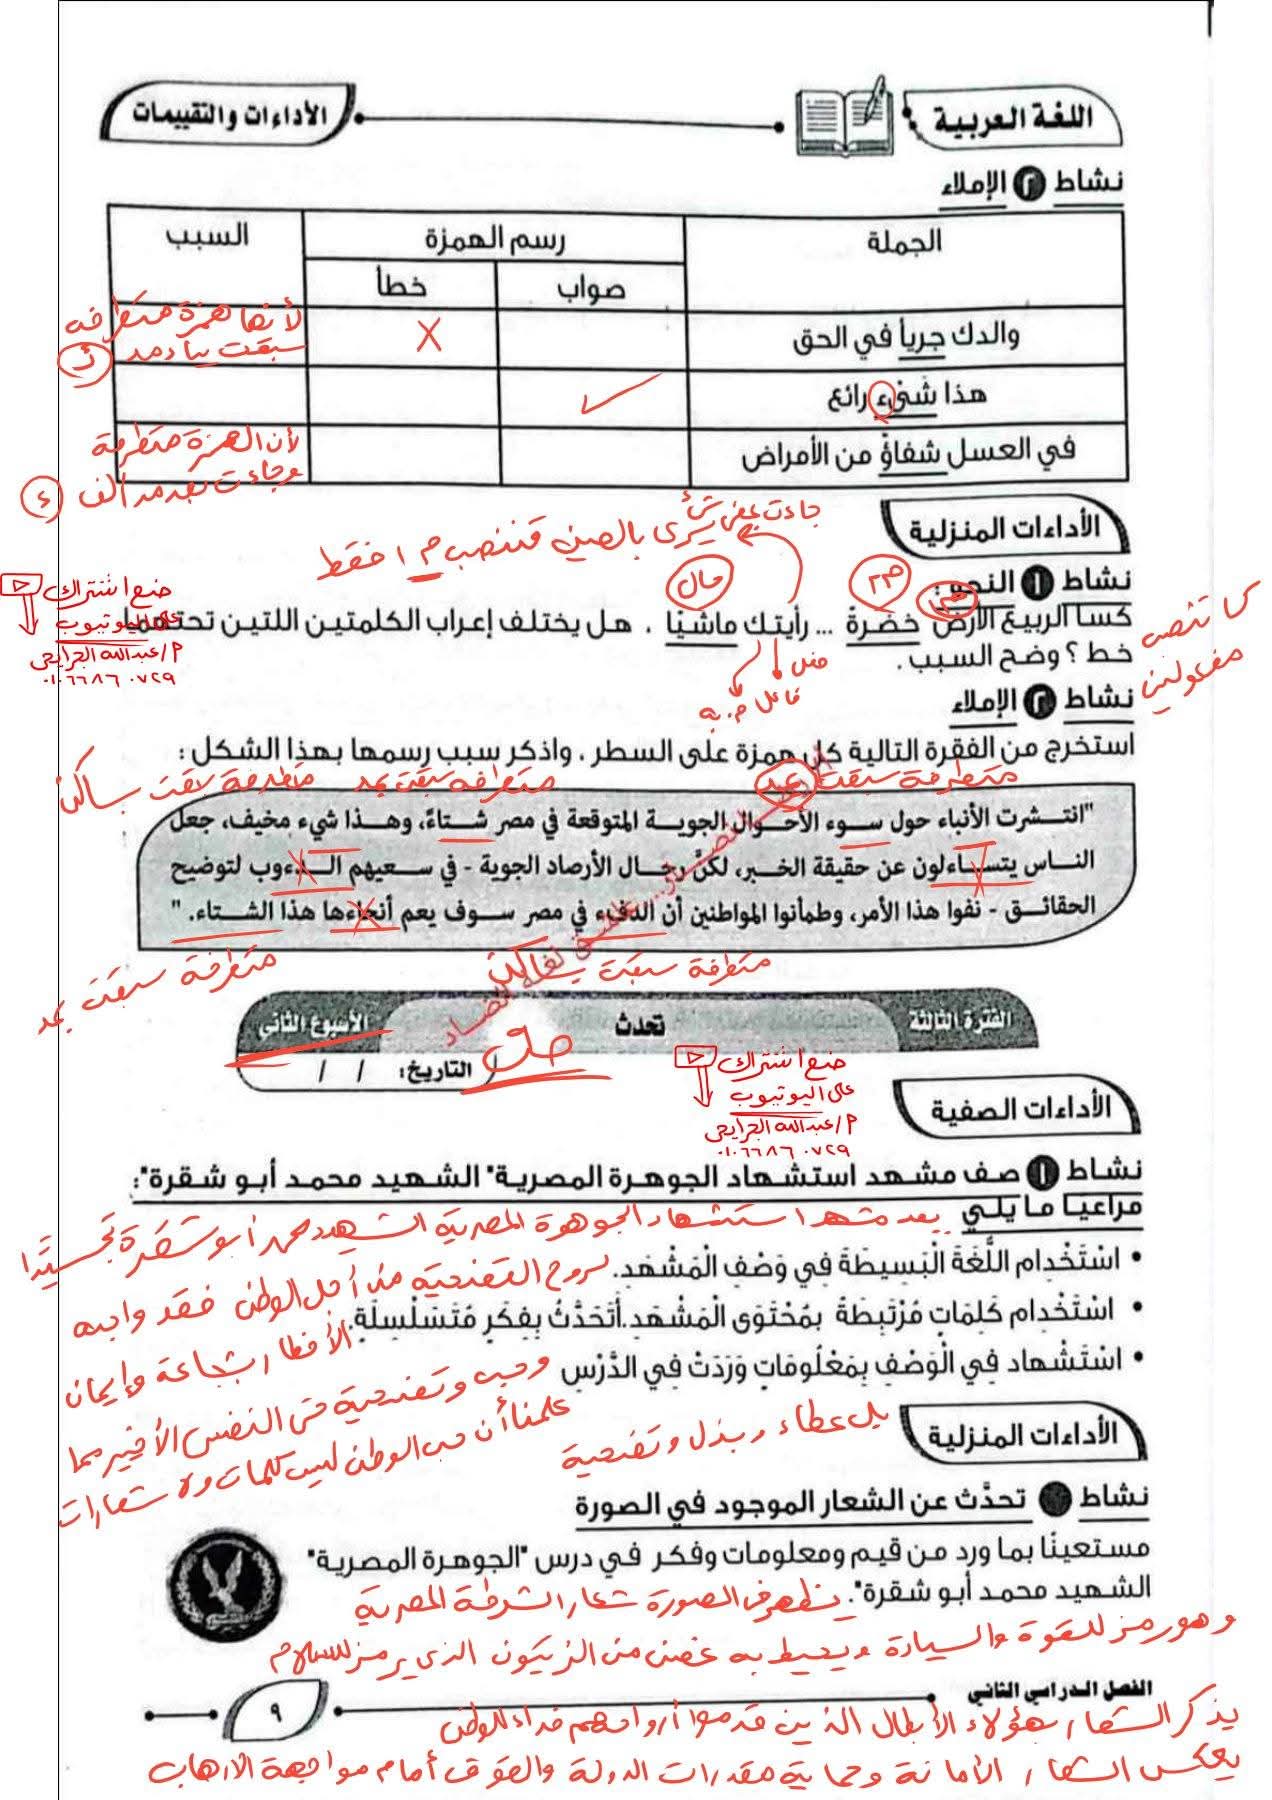 اللغة العربية
الأداءات والتقييمات
نشاط ٢ الإملاء
الجملة
رسم الهمزة
السبب
صواب
خطأ
والدك جريأ في الحق
X
لأنها همزة متطرفه
سبقت بياء مد ئ
هذا شيء رائع
✓
في العسل شفاؤ من الأمراض
لأن الهمزة متطرفة
وجاءت بعد مد ألف ء
الأداءات المنزلية
جاءت بمعنى شئ يرى بالعين فتنصب م ١ فقط
نشاط ١ النحو:
حال
م٢
م١
كسا الربيع الأرض خضرةً ... رأيتك ماشيًا . هل يختلف إعراب الكلمتين اللتين تحتهما
خط ؟ وضح السبب .
كسا تنصب
مفعولين
فاعل م. به
صنع اشتراك
على اليوتيوب
م/عبدالله الجرايحى
٠١٠٦٦٨٦٠٧٢٩
نشاط ٢ الإملاء
استخرج من الفقرة التالية كل همزة على السطر ، واذكر سبب رسمها بهذا الشكل :
متطرفة سبقت بمد
متطرفه سبقت بمد
متطرفة سبقت بساكن
"انتشرت الأنباء حول سوء الأحوال الجوية المتوقعة في مصر شتاءً، وهذا شيء مخيف، جعل
الناس يتساءلون عن حقيقة الخبر، لكنَّ رجال الأرصاد الجوية - في سعيهم الدءوب لتوضيح
الحقائق - نفوا هذا الأمر، وطمأنوا المواطنين أن الدفء في مصر سوف يعم أنحاءها هذا الشتاء. "
متطرفة سبقت بساكن
متطرفة سبقت بمد
الفترة الثالثة
تحدث
الأسبوع الثاني
التاريخ: / /
صنع اشتراك
على اليوتيوب
م/عبدالله الجرايحى
٠١٠٦٦٨٦٠٧٢٩
الأداءات الصفية
نشاط ١ صف مشهد استشهاد الجوهرة المصرية" الشهيد محمد أبو شقرة":
مراعيا ما يلي
يعد مشهد استشهاد الجوهرة المصرية الشهيد محمد أبو شقرة تجسيدًا
• اسْتَخْدِام اللُّغَةَ الْبَسِيطَةَ فِي وَصْفِ الْمَشْهَدِ.
لروح التضحية من أجل الوطن فقد واجه
• اسْتَخْدِام كَلِمَاتٍ مُرْتَبِطَةً بِمُحْتَوَى الْمَشْهَدِ.أَتَحَدَّثُ بِفِكَرٍ مُتَسَلْسِلَةٍ.
الأخطار بشجاعة وإيمان
• اسْتَشْهاد فِي الْوَصْفِ بِمَعْلُومَاتٍ وَرَدَتْ فِي الدَّرْسِ
وحب وتضحية حتى النفس الأخير مما
علمنا أن حب الوطن ليس كلمات ولا شعارات
بل عطاء وبذل وتضحية
الأداءات المنزلية
نشاط تحدَّث عن الشعار الموجود في الصورة
مستعينًا بما ورد من قيم ومعلومات وفكر في درس "الجوهرة المصرية"
الشهيد محمد أبو شقرة".
يظهر فى الصورة شعار الشرطة المصرية
وهو رمز للقوة والسيادة ويحيط به غصن من الزيتون الذى يرمز للسلام
الفصل الدراسي الثاني
٩
يذكر الشعار بهؤلاء الأبطال الذين قدموا أرواحهم فداء للوطن
يعكس الشعار الأمانة وحماية مقدرات الدولة والوقوف أمام مواجهة الارهاب